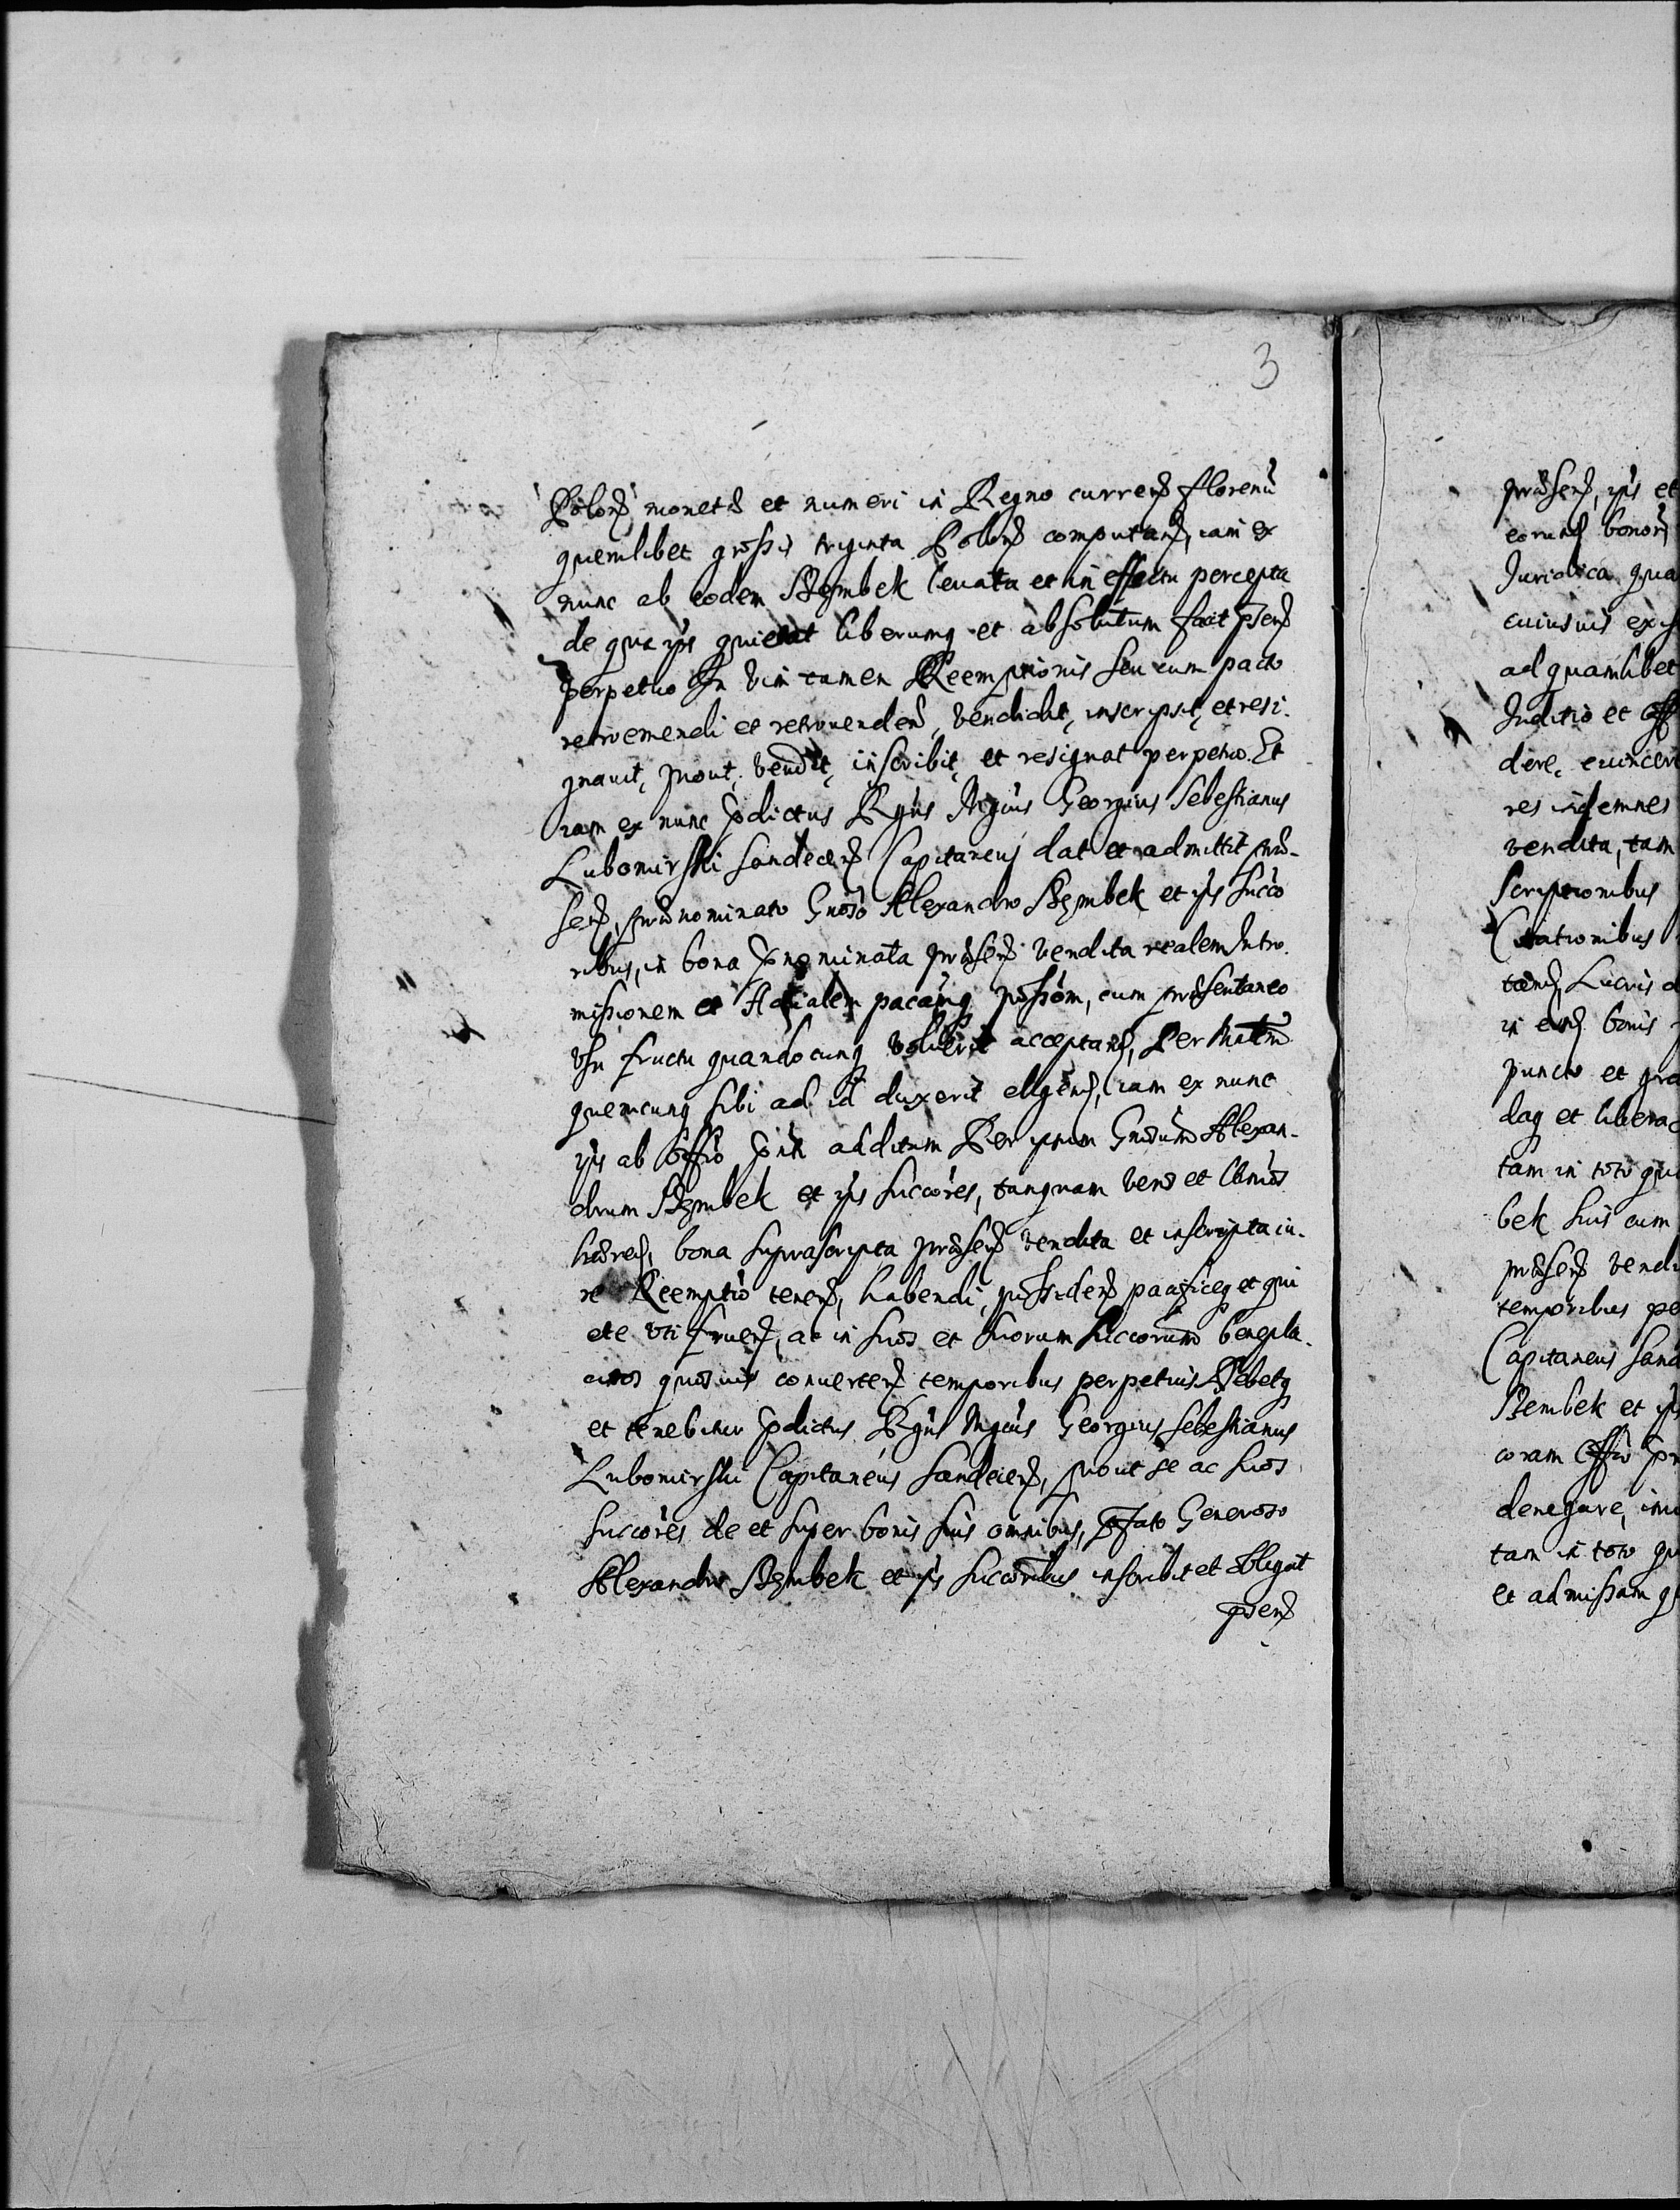 3
Polon monetæ et numeri in Regno curren florenũ
quemlibet grossis triginta Polon computan, iam ex
nunc ab eodem Szembek leuata et in effectu percepta
de qua ipm quietat liberumq et absolutum facit psen
perpetuo In vim tamen Reemptionis seu cum pacto
retroemendi et retrouenden, vendidit, inscripsit, et resi-
gnauit, prout, vendit, inscribit, et resignat perpetuo. Et
iam ex nunc pdictus Mgcus Georgius Sebestianus
Lubomirski Sandecen Capitaneus dat et admittit præ-
sen, prænominato Gnoso Alexandro Szembek et ips succo
ribus, in bona pnominata præsen vendita realem Intro-
missionem et Actialem pacamq possom, cum præsentaneo
vsu fructu quandocunq voluerit acceptan, Per
quemcunq sibi ad id duxerit eligen, iam ex nunc
ips ab offio additum Per ipsum Gnosum Alexan-
drum Szembek et ips succores, tanquam veros et ltimos
hæredes, bona suprascripta præsen vendita et inscripta iu-
re Reemptio tenen, habendi, possiden pacificeq et qui
ete vti fruen, ac in suos et suorum succorum benepla-
citos quosuis conuerten temporibus perpetuis Debetq
et tenebitur pdictus Mgcus Georgius Sebestianus
Lubomirski Capitaneus Sandecen, prout se ac suos
succores de et super bonis suis omnibus, pfato Generoso
Alexandro Szembek et ips succoribus inscribit et obligat
psen
præsen, ips et
eorund bonor
Juridica qua
cuiusuis
ad quamlibet
Juditio et
dere, euincere
res indemnes
vendita, tam
scriptionibus
Citationibus
Lucris
in bonis
puncto et gra
daq et liberac
tam in toto qu
bek suis cum
præsen vendi
temporibus pe
Capitaneus Sand
Szembek et ips
coram Offio
denegare,
tam in toto qu
et admissam